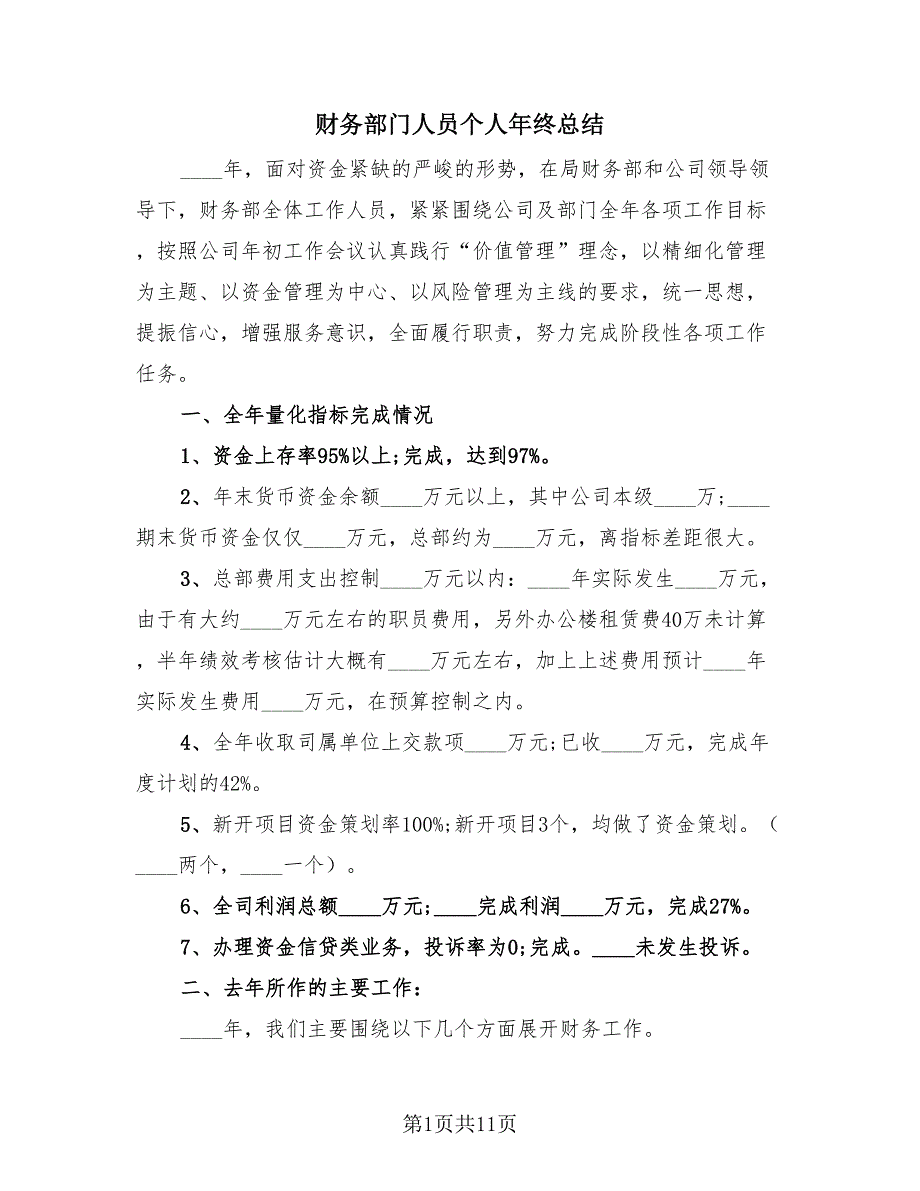 财务部门人员个人年终总结
____年，面对资金紧缺的严峻的形势，在局财务部和公司领导领
导下，财务部全体工作人员，紧紧围绕公司及部门全年各项工作目标
，按照公司年初工作会议认真践行“价值管理”理念，以精细化管理
为主题、以资金管理为中心、以风险管理为主线的要求，统一思想，
提振信心，增强服务意识，全面履行职责，努力完成阶段性各项工作
任务。
一、全年量化指标完成情况
1、资金上存率95%以上;完成，达到97%。
2、年末货币资金余额____万元以上，其中公司本级____万;____
期末货币资金仅仅____万元，总部约为____万元，离指标差距很大。
3、总部费用支出控制____万元以内：____年实际发生____万元，
由于有大约____万元左右的职员费用，另外办公楼租赁费40万未计算
，半年绩效考核估计大概有____万元左右，加上上述费用预计____年
实际发生费用____万元，在预算控制之内。
4、全年收取司属单位上交款项____万元;已收____万元，完成年
度计划的42%。
5、新开项目资金策划率100%;新开项目3个，均做了资金策划。（
____两个，____一个）。
6、全司利润总额____万元;____完成利润____万元，完成27%。
7、办理资金信贷类业务，投诉率为0;完成。____未发生投诉。
二、去年所作的主要工作：
____年，我们主要围绕以下几个方面展开财务工作。
第1页共11页